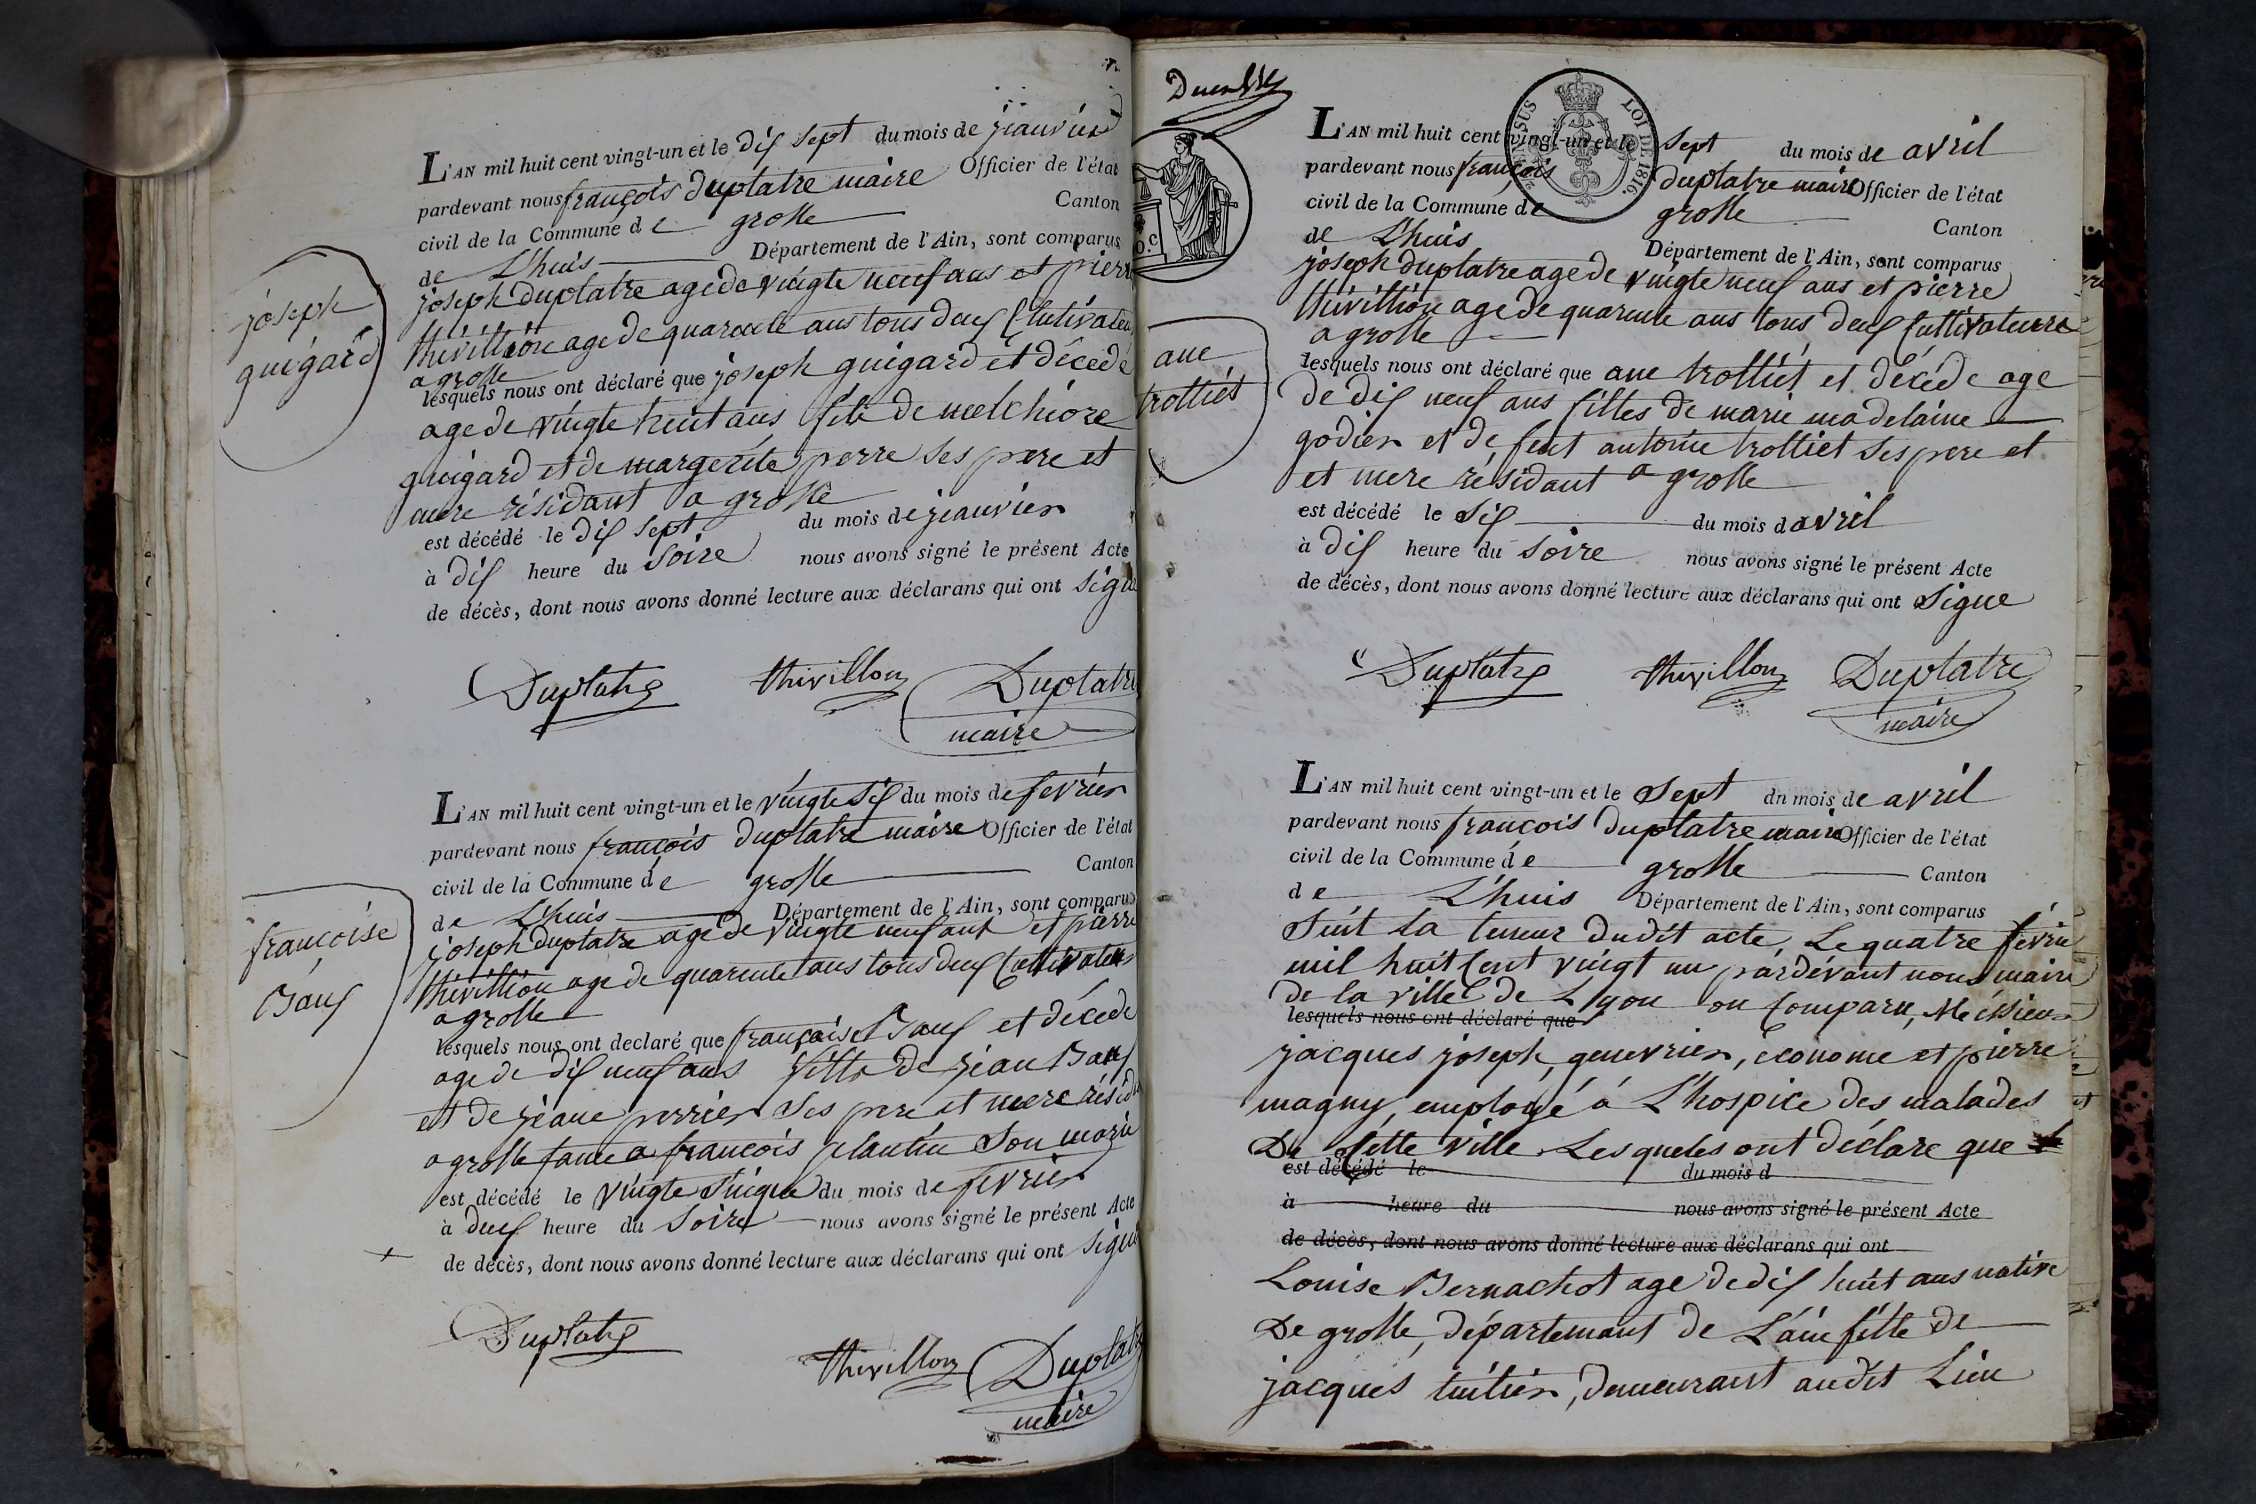 L'AN mil huit cent vingt-un et le dix sept du mois de jeanvier
pardevant nous françois duplatre maire Officier de l'état
civil de la Commune de grolle Canton
de L'huis Département de l'Ain, sont comparus
joseph duplatre age de vingte neuf ans et pierre
thivillion age de quarente ans tous deux Cultivateur
a grolle
lesquels nous ont déclaré que joseph guigard et décédé
age de vingte heuit ans fils de melchiore
guigard et de margerite perre ses pere et
mere résidant a grolle
est décédé le dix sept du mois de jeanvier
à dix heure du soire nous avons signé le présent Acte
de décès, dont nous avons donné lecture aux déclarans qui ont signe
joseph
guigard
Duplatre thivillon Duplatre
maire
L'AN mil huit cent vingt-un et le vingte six du mois de fevrier
pardevant nous françois duplatre maire Officier de l'état
civil de la Commune de grolle Canton
de L'huis Département de l'Ain, sont comparus
joseph duplatre age de vingte neuf ans et pierre
thivillion age de quarente ans tous deux Cultivateur
a grolle
lesquels nous ont declaré que françoise Baux et décéde
age de dix neuf ans fille de jean Baux
et de jeane perrier ses pere et mere réside
a grolle fame a francois plantin son marie
est décédé le vingte sinque du mois de fevrier
à deux heure du soire nous avons signé le présent Acte
de décès, dont nous avons donné lecture aux déclarans qui ont signe
françoise
Baux
Duplatre thivillon Duplatre
maire
L'AN mil huit cent vingt-un et le sept du mois de avril
pardevant nous françois duplatre maire Officier de l'état
civil de la Commune de grolle Canton
de L'huis Département de l'Ain, sont comparus
joseph duplatre age de vingte neuf ans et pierre
thivillion age de quarente ans tous deux Cultivateurs
a grolle
lesquels nous ont déclaré que ane trolliet et décéde age
de dix neuf ans filles de marie madelaine
godier et de feut antoine trolliet ses pere et
et mere résidant a grolle
est décédé le six du mois d avril
à dix heure du soire nous avons signé le présent Acte
de décès, dont nous avons donné lecture aux déclarans qui ont signe
ane
trolliet
LOI DE 1816.
Duplatre thivillon Duplatre
maire
L'AN mil huit cent vingt-un et le sept du mois de avril
pardevant nous françois duplatre maire Officier de l'état
civil de la Commune de grolle Canton
de L'huis Département de l'Ain, sont comparus
suit la teneur dudit acte, Le quatre févrie
mil huit Cent vingt un pardévant nous maire
de la ville de Lyon on Comparu, Méssieur
lesquels nous ont déclaré que
jacques joseph, genevrier, économe et pierre
magny, employé á L'hospice des malades
De Cette ville Lesqueles ont déclare que
est décédé le du mois d
à heure du nous avons signé le présent Acte
de décès, dont nous avons donné lecture aux déclarans qui ont
Louise Bernachot age de dix huit ans native
De grolle, départemant de L'ain fille de
jacques tuilier, demeurant audit Lieu